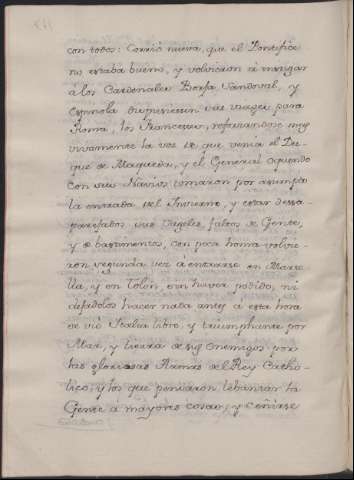 con todo: Corrió nueva, que el Pontifice
no estaba bueno, y volvieron à instigar
à los Cardenales Borja, Sandoval, y
Espinola dispusiesen sus viages para
Roma, los Franceses, refrescandose muy
vivamente la voz de que venia el Du-
que de Maqueda, y el General oquendo
con sus Navios tomaron por asumpto
la entrada del Invierno, y estar desa-
parejados sus Vageles, faltos de Gente,
y de bastimentos, con poca honrra volvie-
ron segunda vez à entrarse en Marse
lla, y en Tolón, sin haver podido, ni
dejadolos hacer nada antes à esta hora
se vió Italia libre, y triumphante por
Mar, y tierra de sus enemigos por
las gloriosas Armas del Rey Catho-
lico, y los que pensaron lebantar la
Gente à mayores cosas, y ceñirse